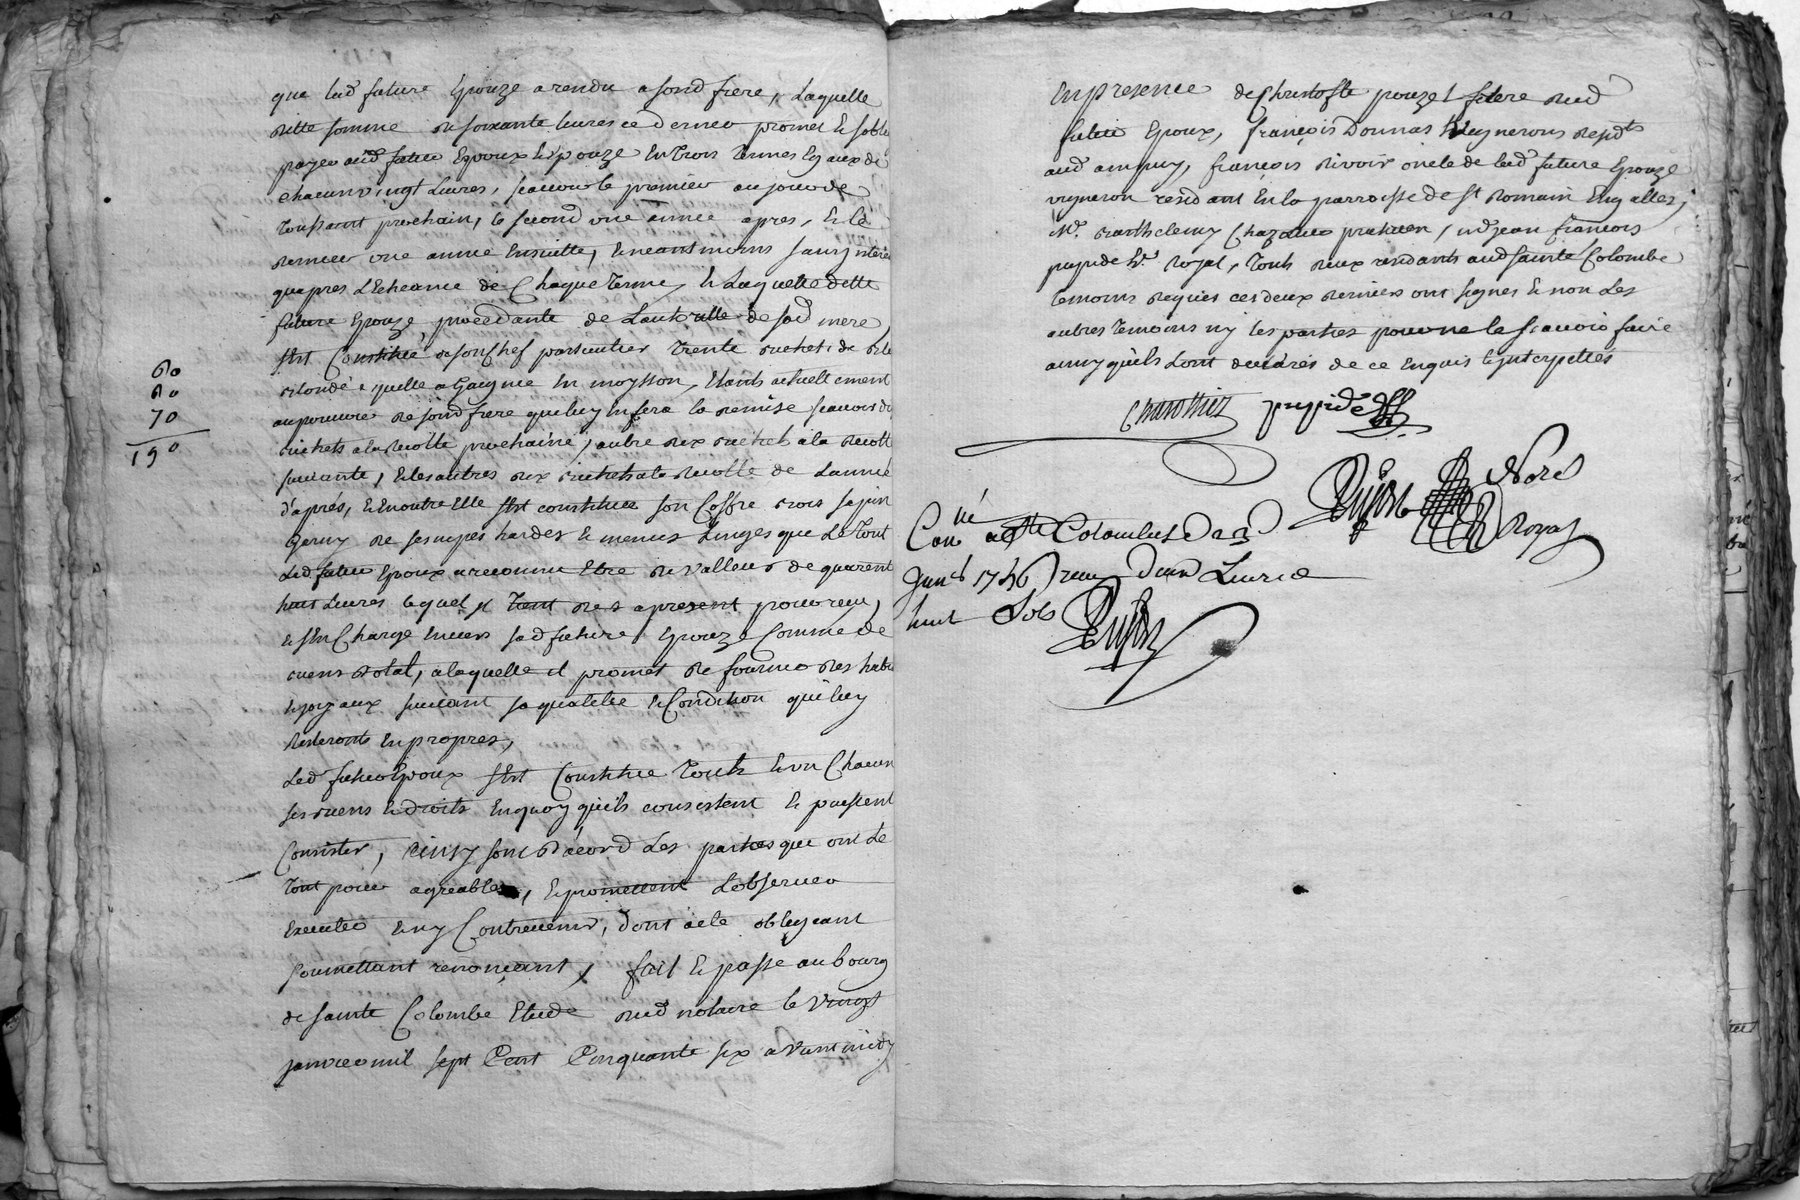 que lad future Epouze a rendu a sond frere, Laquelle
ditte somme de soixante livres ce dernier promet & s'oblig
payer aud futur Epoux & Epouze En trois termes Egaux de
chacun vingt Livres, scavoir le premier au jour de
Toussaint prochain, le second une année apres, & le
dernier une année Ensuitte, & neantmoins sans interes
qu'apres L'Echeance de Chaque terme, & Laquelle ditte
future Epouze, procedante de L'authorité de sad mere,
s'Est Constitué de son Chef particulier Trente bichets de bled
60
60
70
190
qu'elle a Gaigné En moysson, Etants actuellement
au pouvoir de sond frere que luy En fera la remise scavoir dix
bichets a la recolte prochaine, autre dix bichets à la recolte
suivante, & les autres dix bichets a la recolte de L'année
d'après, & En outre Elle s'Est constituée son Coffre bois sapin
Garny de ses nipes hardes & menus Linges que Le Tout
Led futur Epoux a reconnu Etre de valleur de quarent
huit Livres lequel il Tient des a present pour reçu,
& s'En Charge Envers sad future Epouze Comme de
biens dotal, a laquelle il promet de fournir des habi
& joyaux suivant sa qualité & Condition qui luy
resteront En propres,
Led futur Epoux s'Est Constitué Touts & un Chacun
ses biens & droits En quoy qu'ils consistent & puissent
Consister, ainsy sont d'acord Les parties que ont Le
Tout pour agreable, & promettent L'observer
Executer & n'y Contrevenir, dont acte obligeant
soumettant renonçant, fait & passé au bourg
de sainte Colombe Etude dud notaire le vingt
janvier mil sept Cent Cinquante six avant midy
En presence de Christofle pouzet frere dud
futur Epoux, françois Donnas Vignerons residts
aud ampuy, françois oncle de lad future Epouze
vigneron residant En la parroisse de St Romain En gallez,
Mr Barthelemy praticien, & jean francois
hr Royal, Touts deux residants aud sainte Colombe
temoins requis ces deux derniers ont signés & non Les
autres temoins ny les parties pour ne le scavoir faire
ainsy qu'ils L'ont declarés de ce Enquis & Interpellés
Nore
Royal
Con.lé a Ste Colombe Le
janr 1756 reçu d'une Livre
huit Sols